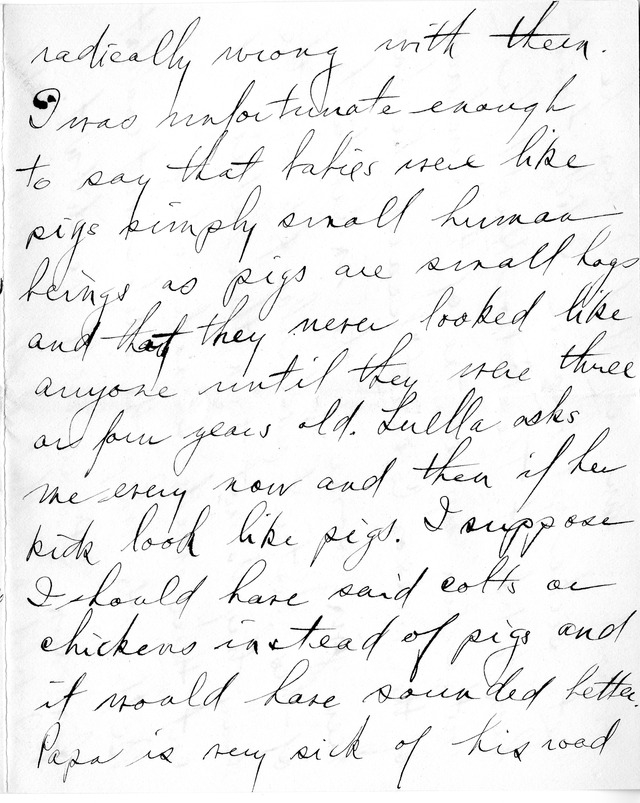 radically wrong with them.
I was unfortunate enough
to say that babies were like
pigs simply small human
beings as pigs are small hogs
and that they never looked like
anyone until they were three
or four years old. Luella asks
me every now and then if her
kids look like pigs. I suppose
I should have said colts or
chickens instead of pigs and
it would have sounded better.
Papa is very sick of his road